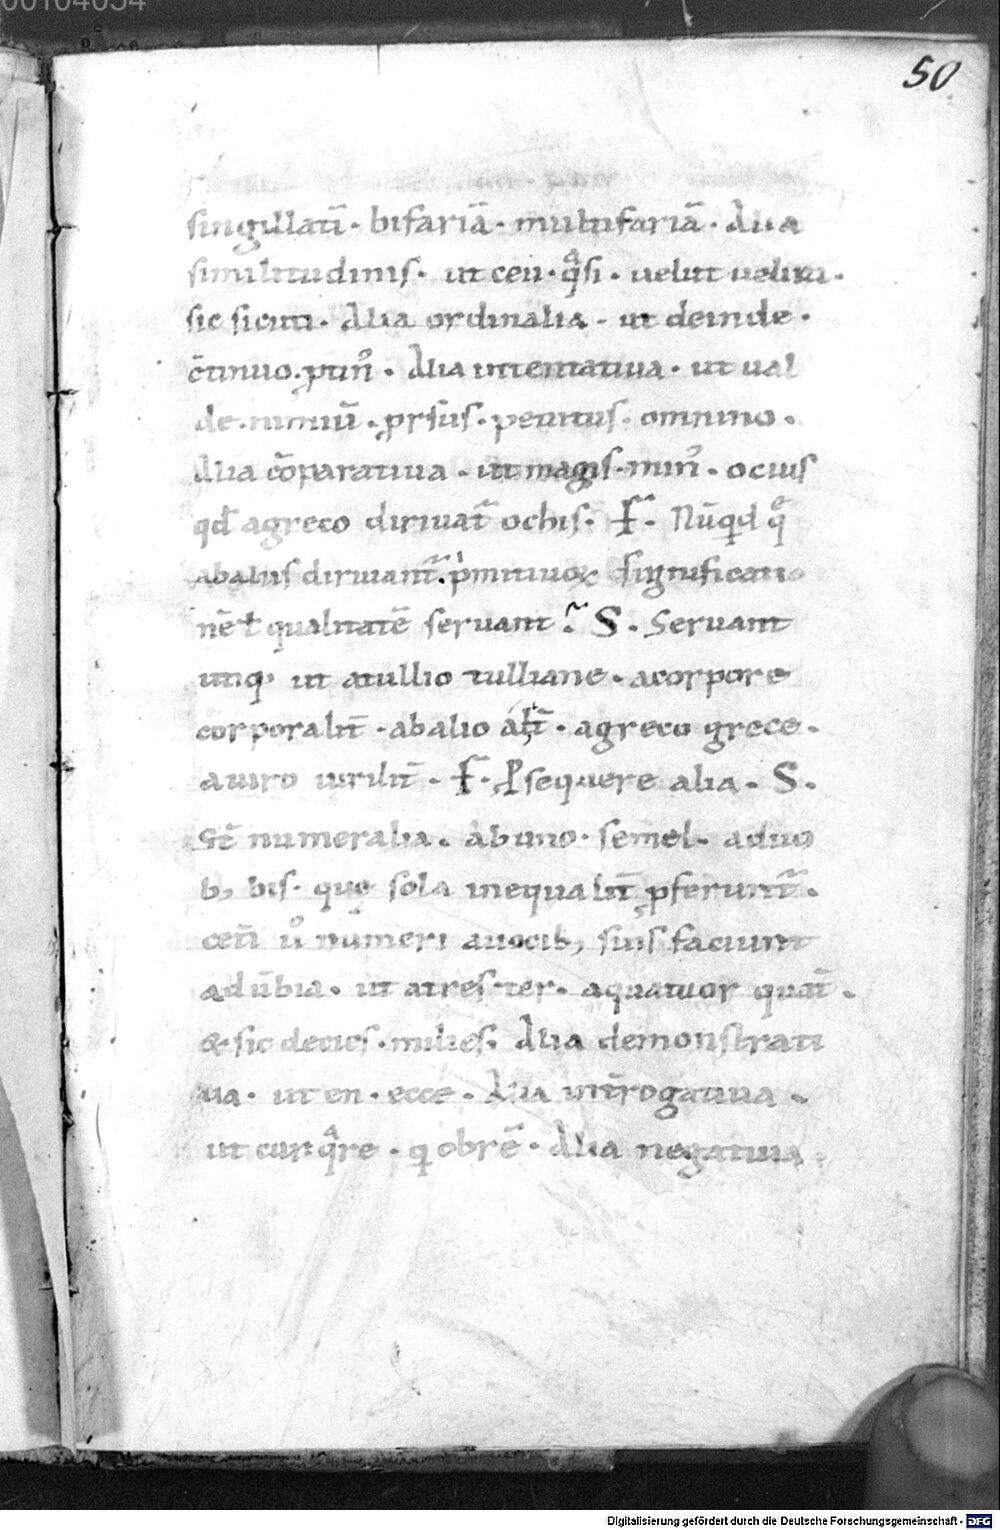 00104054
50
singillatī · bifariā · multifariā · Alia
similitudinis · ut ceu · qͣsi · uelut ueluti ·
sic sicuti · Alia ordinalia · ut deinde ·
c̄tinuo · ꝓtin᷒ · Alia intentatiua · ut ual
de · nimiū · ꝓrsus · penitus · omnino ·
Alia cōparatiua · ut magis · min᷒ · ocius
qd̄ agreco diriuat᷑ ochis · F᷑ · Nūqͥd q̄
abaliis diriuant᷑ · pͥmitiuoꝝ significatio
nē ł qualitatē seruant ·᷉ S · Seruant
utiq; ut atullio tulliane · acorpore
corporalit̄ · abalio alit̄ · agreco grece ·
auiro uirilit̄ · F᷑ · Ꝓsequere alia · S ·
St̄ numeralia · abuno · semel · aduo
b; bis · quę sola inequalit̄ ꝓferunt᷑ ·
cet̄i uͦ numeri auocib; suis faciunt
adūbia · ut atres · ter · aquatuor quat̄ ·
& sic decies · milies · Alia demonstrati
ua · ut en · ecce · Alia int̄rogatiua ·
ut cur qͣre · ꝗ obrē · Alia negatiua ·
Digitalisierung gefördert durch die Deutsche Forschungsgemeinschaft - DFG